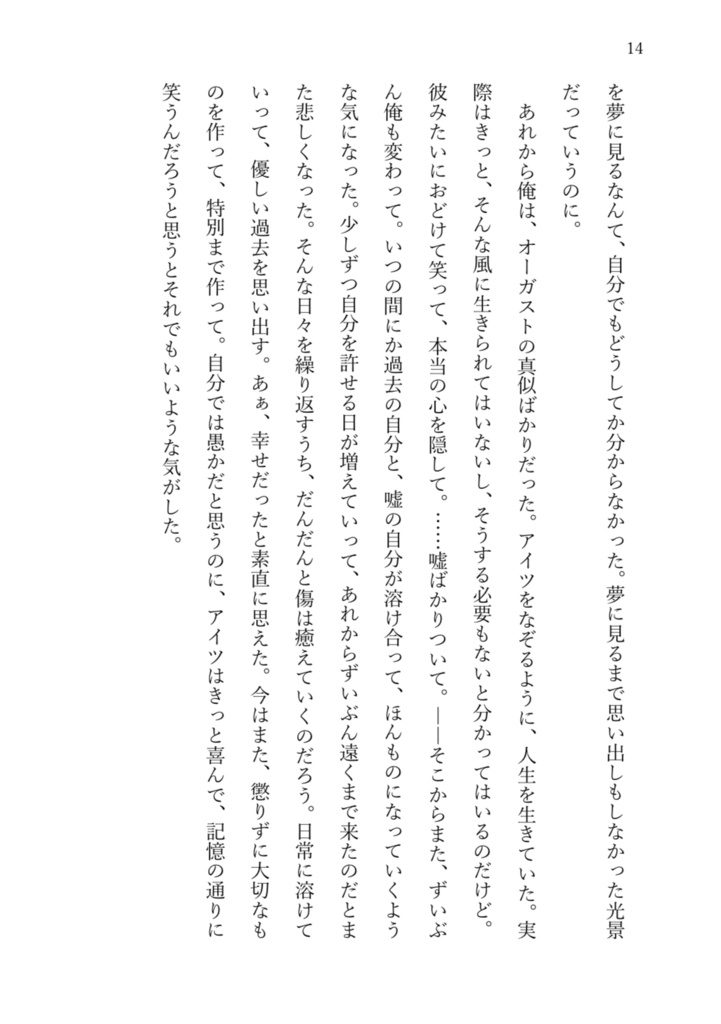 14
を夢に見るなんて、自分でもどうしてか分からなかった。夢に見るまで思い出しもしなかった光景
だっていうのに。
　あれから俺は、オーガストの真似ばかりだった。アイツをなぞるように、人生を生きていた。実
際はきっと、そんな風に生きられてはいないし、そうする必要もないと分かってはいるのだけど。
彼みたいにおどけて笑って、本当の心を隠して。……嘘ばかりついて。――そこからまた、ずいぶ
ん俺も変わって。いつの間にか過去の自分と、嘘の自分が溶け合って、ほんものになっていくよう
な気になった。少しずつ自分を許せる日が増えていって、あれからずいぶん遠くまで来たのだとま
た悲しくなった。そんな日々を繰り返すうち、だんだんと傷は癒えていくのだろう。日常に溶けて
いって、優しい過去を思い出す。あぁ、幸せだったと素直に思えた。今はまた、懲りずに大切なも
のを作って、特別まで作って。自分では愚かだと思うのに、アイツはきっと喜んで、記憶の通りに
笑うんだろうと思うとそれでもいいような気がした。